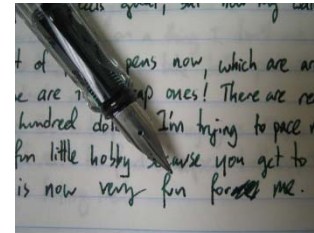 goal, but now my
t of pens now, which are ar
e are ap ones! There are re
hundred dol I'm trying to pace m
fun little hobby because you get to
is now very fun for me.